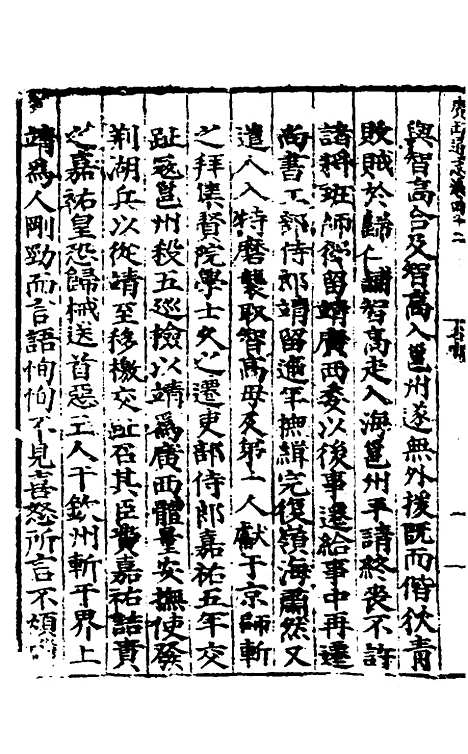 與智高合及智高入邕州遂無外援既而偕狄青
敗賊於歸仁鋪智高走入海邕州平請終喪不許
諸將班師從留靖廣西委以後事遷給事中再遷
尚書工部侍郎靖留逾年撫緝完復嶺海肅然又
遣人入特磨襲取智高母及弟一人獻于京師斬
之拜集賢院學士久之遷吏部侍郎嘉祐五年交
趾寇邕州殺五巡檢以靖爲廣西體量安撫使發
荆湖兵以從靖至移檄交趾召其臣費嘉祐詰責
之嘉祐皇恐歸械送首惡五人于欽州斬于界上
靖爲人剛勁而言語恂恂不見喜怒所言不煩